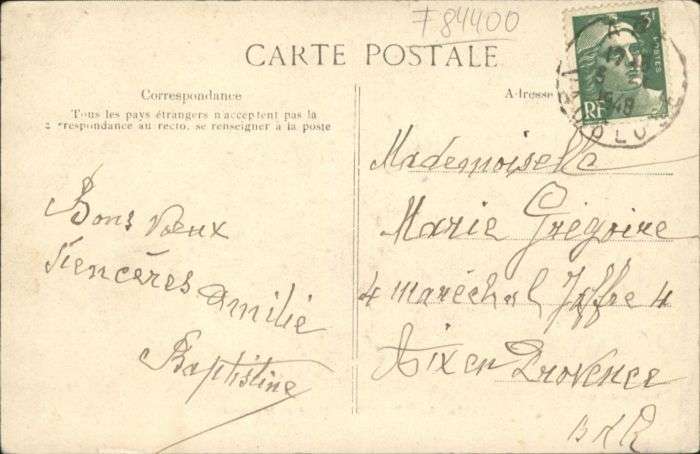 F84400
CARTE POSTALE
Correspondance
Tous les pays étrangers n'acceptent pas la
respondance au recto, se renseigner à la poste
Adresse
3F
POSTES
RF
1948
Bons voeux
Siencères Amilié
Baptistine
Mademoiselle
Marie Grégoire
4 maréchal Joffre 4
Aix en Provence
B d R